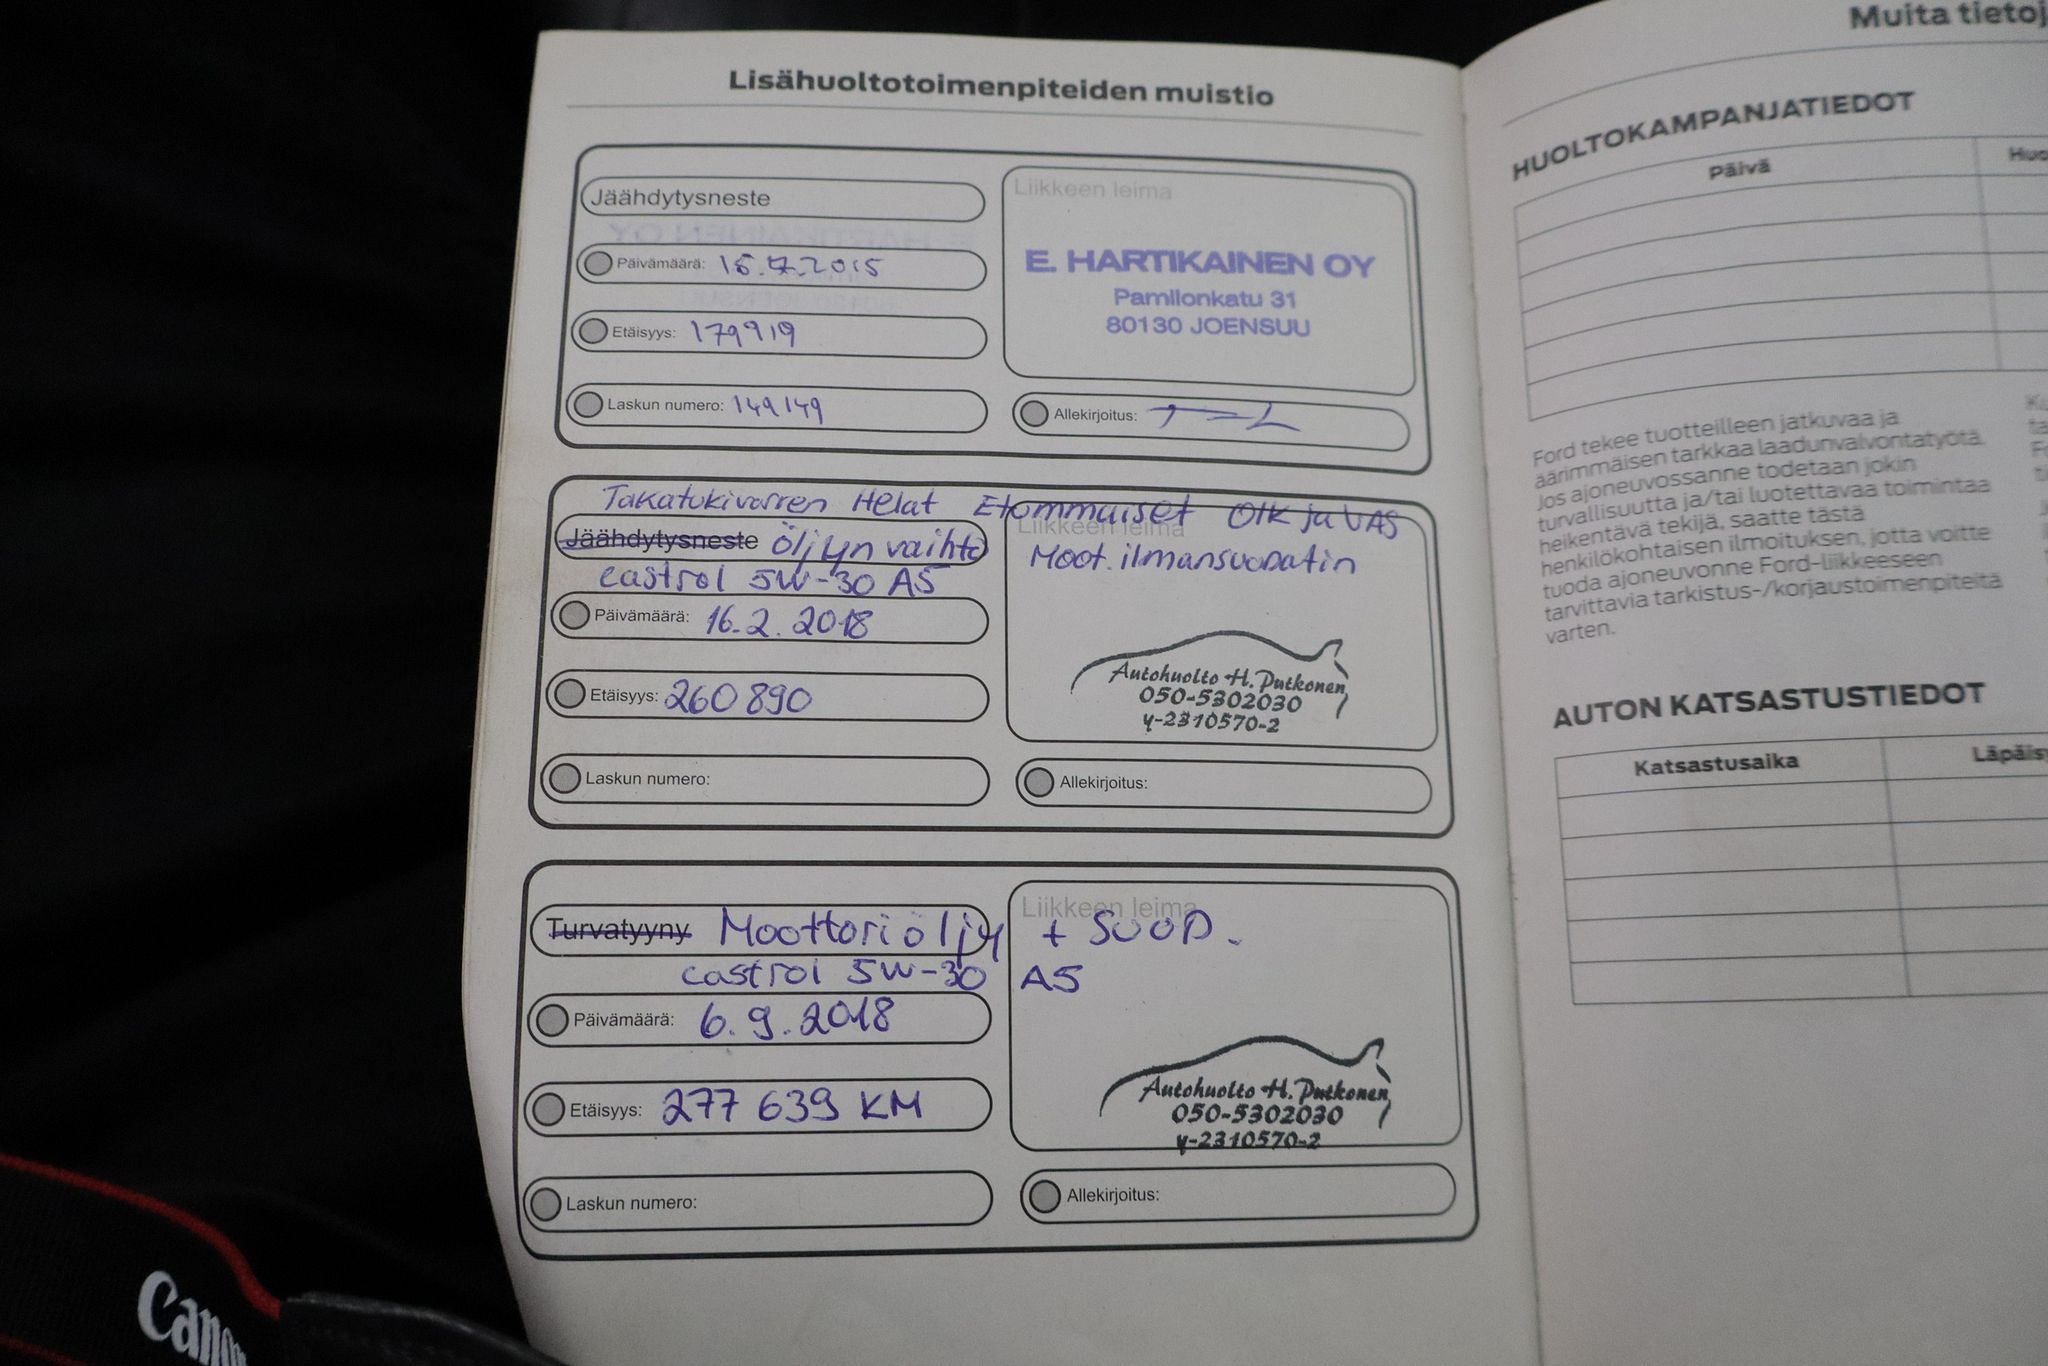 Lisähuoltotoimenpiteiden muistio
Jäähdytysneste
Päivämäärä: 15.7.2015
Etäisyys: 179919
Laskun numero: 149149
Liikkeen leima
E. HARTIKAINEN OY
Pamilonkatu 31
80130 JOENSUU
Allekirjoitus:
Takatukivarren Helat Etommaiset OIK ja VAS
Jäähdytysneste Öljyn vaihto
castrol 5W-30 A5
Päivämäärä: 16.2.2018
Etäisyys: 260890
Laskun numero:
Liikkeen leima
Moot.ilmansuodatin
Autohuolto H. Putkonen
050-5302030
y-2310570-2
Allekirjoitus:
Turvatyyny Moottoriöljy + SUOD.
castrol 5W-30 A5
Päivämäärä: 6.9.2018
Etäisyys: 277 639 KM
Laskun numero:
Liikkeen leima
Autohuolto H. Putkonen
050-5302030
y-2310570-2
Allekirjoitus:
Muita tietoj
HUOLTOKAMPANJATIEDOT
Päivä Huo
Ford tekee tuotteilleen jatkuvaa ja
äärimmäisen tarkkaa laadunvalvontatyötä.
Jos ajoneuvossanne todetaan jokin
turvallisuutta ja/tai luotettavaa toimintaa
heikentävä tekijä, saatte tästä
henkilökohtaisen ilmoituksen, jotta voitte
tuoda ajoneuvonne Ford-liikkeeseen
tarvittavia tarkistus-/korjaustoimenpiteitä
varten.
AUTON KATSASTUSTIEDOT
Katsastusaika Läpäisy
Canon